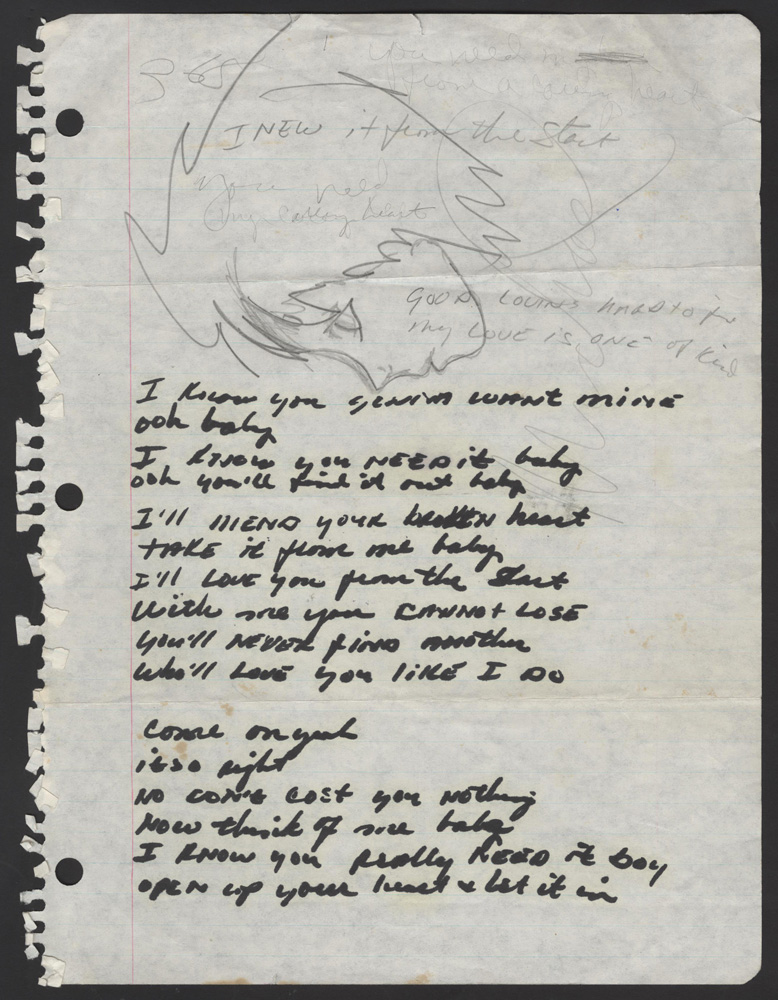 365
you need
from a
I NEW it from the Start
your
heart
GOOD LOVINS HARD to
my LOVE is ONE of kind
I know you gunna want mine
ooh baby
I know you NEED it baby
ooh you'll find it out baby
I'll MEND your broken heart
TAKE it from me baby
I'll LOVE you from the Start
With me you CANNOT LOSE
you'll NEVER find another
who'll LOVE you liKE I DO
come on yeah
its so right
NO don't cost you nothing
Now think of me baby
I KNOW you really NEED it boy
OPEN up your heart & let it in